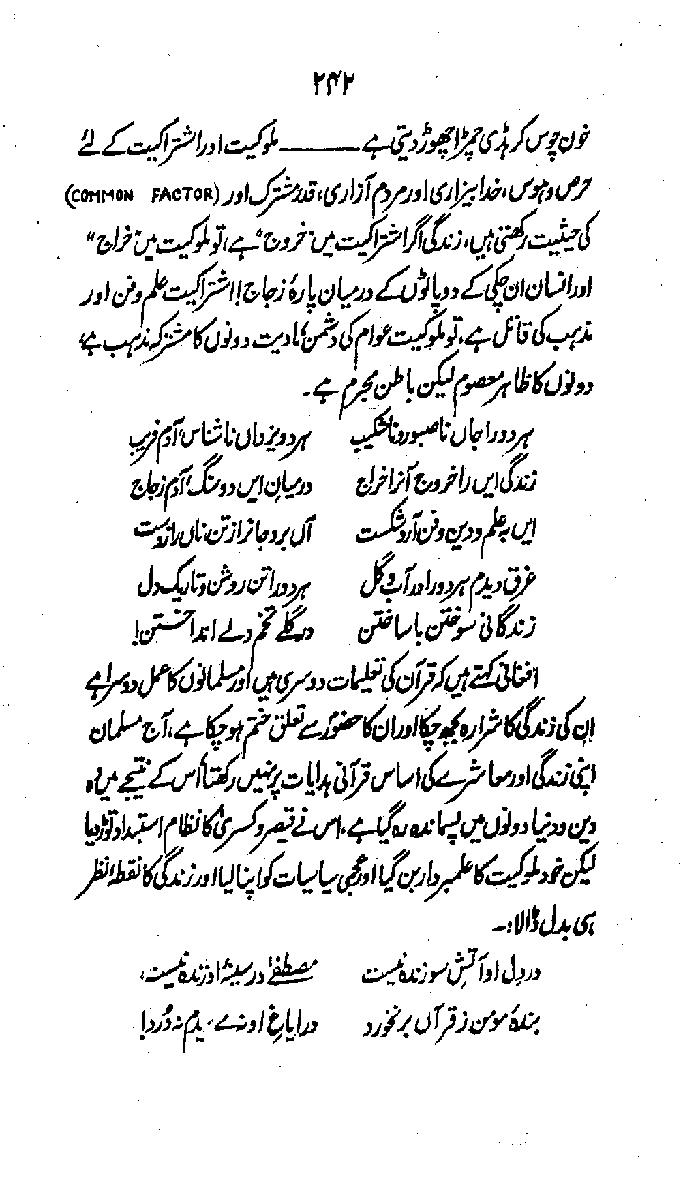 ۲۴۲
خون چوس کر ہڈی چمڑا چھوڑ دیتی ہے ——— ملوکیت اور اشتراکیت کے لئے
حرص و ہوس، خدا بیزاری اور مردم آزاری، قدر مشترک اور (COMMON FACTOR)
کی حیثیت رکھتی ہیں، زندگی اگر اشتراکیت میں "خروج" ہے، تو ملوکیت میں "خراج"
اور انسان ان چکی کے دو پاٹوں کے درمیان پارۂ زجاج! اشتراکیت علم و فن اور
مذہب کی قاتل ہے، تو ملوکیت عوام کی دشمن، مادیت دونوں کا مشترکہ مذہب ہے،
دونوں کا ظاہر معصوم لیکن باطن مجرم ہے۔
ہر دو را جاں ناصبور و ناشکیب ہر دو یزداں ناشناس آدم فریب
زندگی ایں را خروج آنرا خراج درمیان ایں دو سنگ آدم زجاج
ایں بہ علم و دین و فن آرد شکست آں برد جانرا ز تن ناں را ز دست
غرق دیدم ہر دو را در آب و گل ہر دو را تن روشن و تاریک دل
زندگانی سوختن با ساختن در گلے تخم دلے انداختن!
افغانی کہتے ہیں کہ قرآن کی تعلیمات دوسری ہیں اور مسلمانوں کا عمل دوسرا ہے
ان کی زندگی کا شرارہ بجھ چکا اور ان کا حضورؐ سے تعلق ختم ہو چکا ہے، آج مسلمان
اپنی زندگی اور معاشرے کی اساس قرآنی ہدایات پر نہیں رکھتا، اس کے نتیجے میں وہ
دین و دنیا دونوں میں پسماندہ رہ گیا ہے، اس نے قیصر و کسریٰ کا نظام استبداد توڑ دیا
لیکن خود ملوکیت کا علمبردار بن گیا اور عجمی سیاسیات کو اپنا لیا اور زندگی کا نقطۂ نظر
ہی بدل ڈالا:۔
در دل او آتش سوزندہ نیست مصطفےٰ در سینۂ او زندہ نیست،
بندۂ مومن ز قرآں بر نخورد در ایاغ او نہ مے دیدم نہ دُرد!